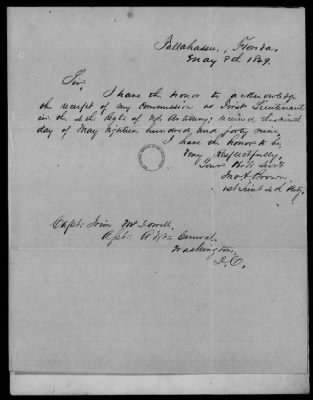 Tallahassee, Florida.
May 8th 1849.
Sir,
I have the honor to acknowledge
the receipt of my Commission as First Lieutenant
in the 4th Regt of U.S. Artillery; received
day of May Eighteen hundred and forty nine.
I have the honor to be,
Very Respectfully,
Your Obt Servt
Jno. A. Brown,
1st Lieut 4th Arty.
Capt. Irvin McDowell,
Asst. Adjt. General,
Washington,
D.C.